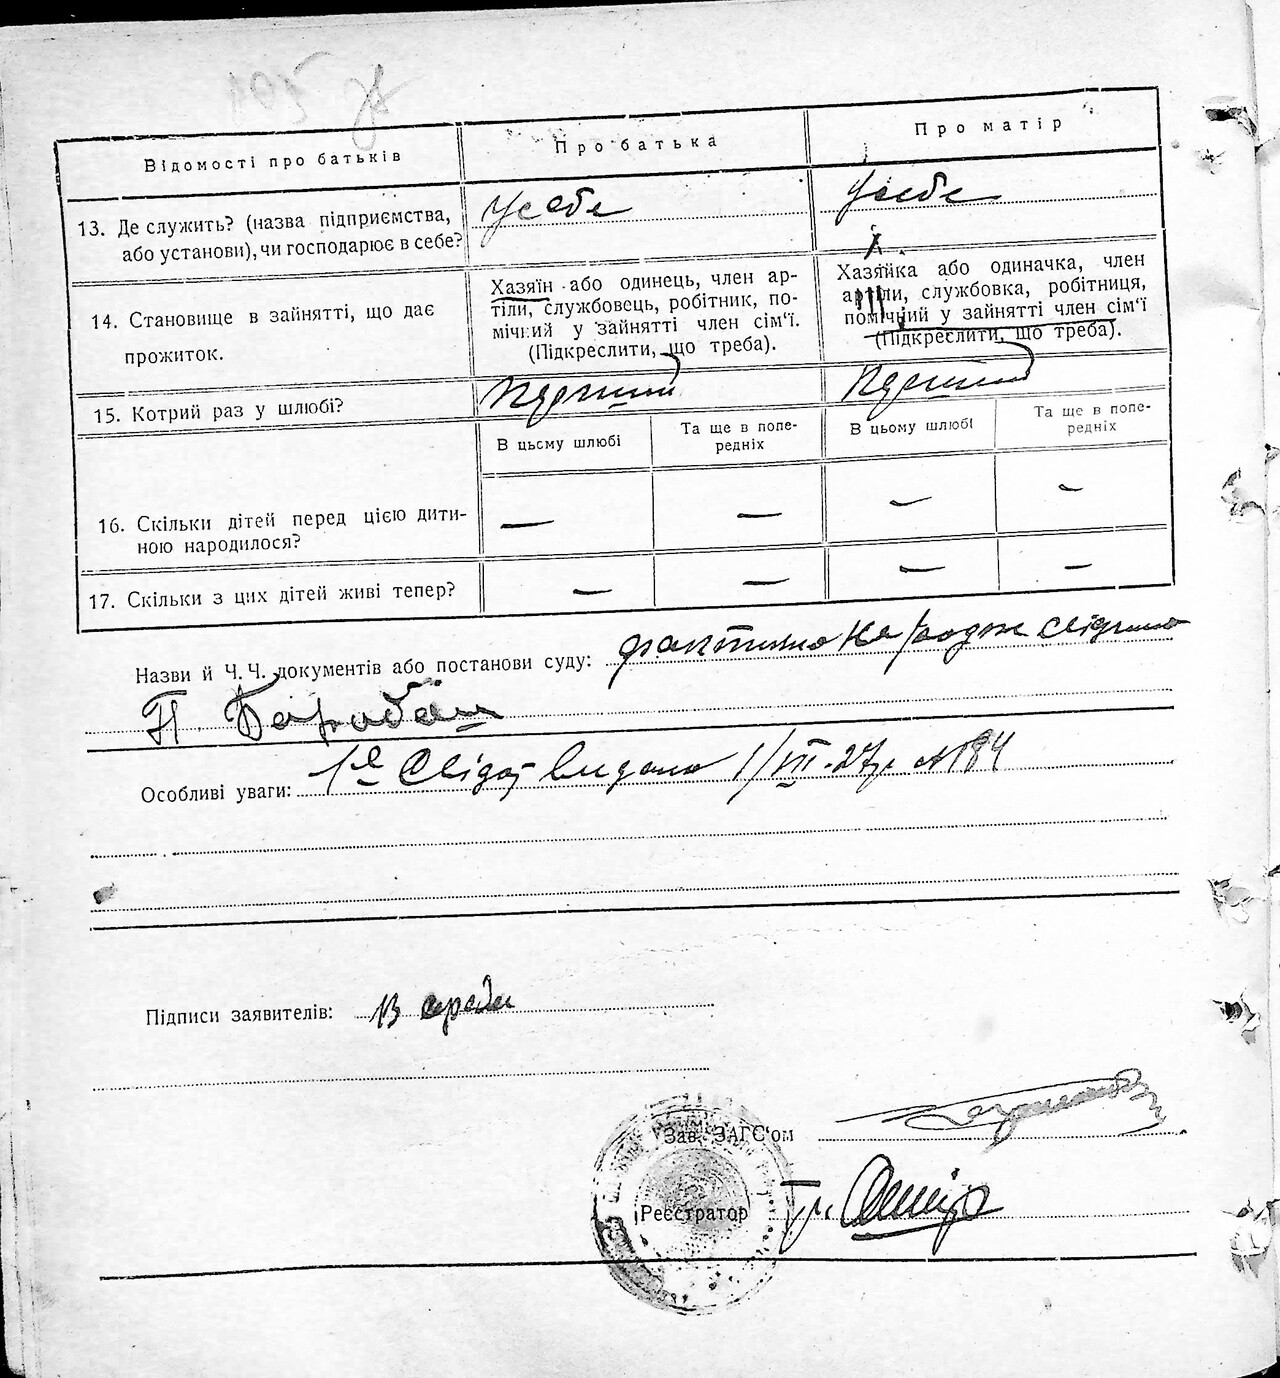 Відомості про батьків
Про батька
Про матір
13. Де служить? (назва підприємства,
або установи), чи господарює в себе?
У себе
У себе
14. Становище в зайнятті, що дає
прожиток.
Хазяїн або одинець, член ар-
тіли, службовець, робітник, по-
мічний у зайнятті член сім'ї.
(Підкреслити, що треба).
Хазяйка або одиначка, член
артіли, службовка, робітниця,
помічний у зайнятті член сім'ї
(Підкреслити, що треба).
15. Котрий раз у шлюбі?
Перший
Перший
В цьому шлюбі
Та ще в попе-
редніх
В цьому шлюбі
Та ще в попе-
редніх
16. Скільки дітей перед цією дити-
ною народилося?
— — — —
17. Скільки з цих дітей живі тепер?
— — — —
Назви й Ч. Ч. документів або постанови суду:
П. Барабаш
Особливі уваги: 1/VII-27р №184
Підписи заявителів:
Зав. ЗАГС'ом
Реєстратор